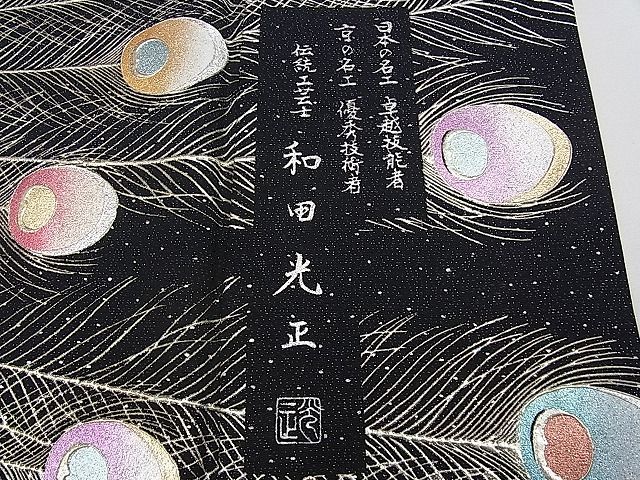 日本の名工 卓越技能者
京の名工 優秀技術者
伝統工芸士
和田光正
光正